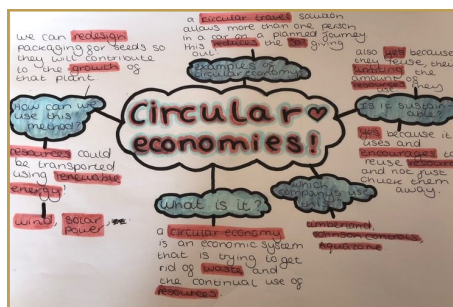 we can redesign
packaging for seeds so
they will contribute
to the growth of
that plant
How can we
use this
method?
resources could
be transported
using renewable
energy!
wind, solar
power,
a circular travel
allows more than one person
in a car on a planned journey
this reduces the giving
out.
Examples of
circular economy
circular
economies!
also yes because
they reuse, they
limiting the
amount of
resources they
Is it sustain-
able?
yes because it
uses and
encourages to
reuse resources
and not just
chuck them
away.
What is it?
a circular economy
is an economic system
that is trying to get
rid of waste and
the continual use of
resources.
which
company's use
timberland,
Johnson controls,
Aquazone